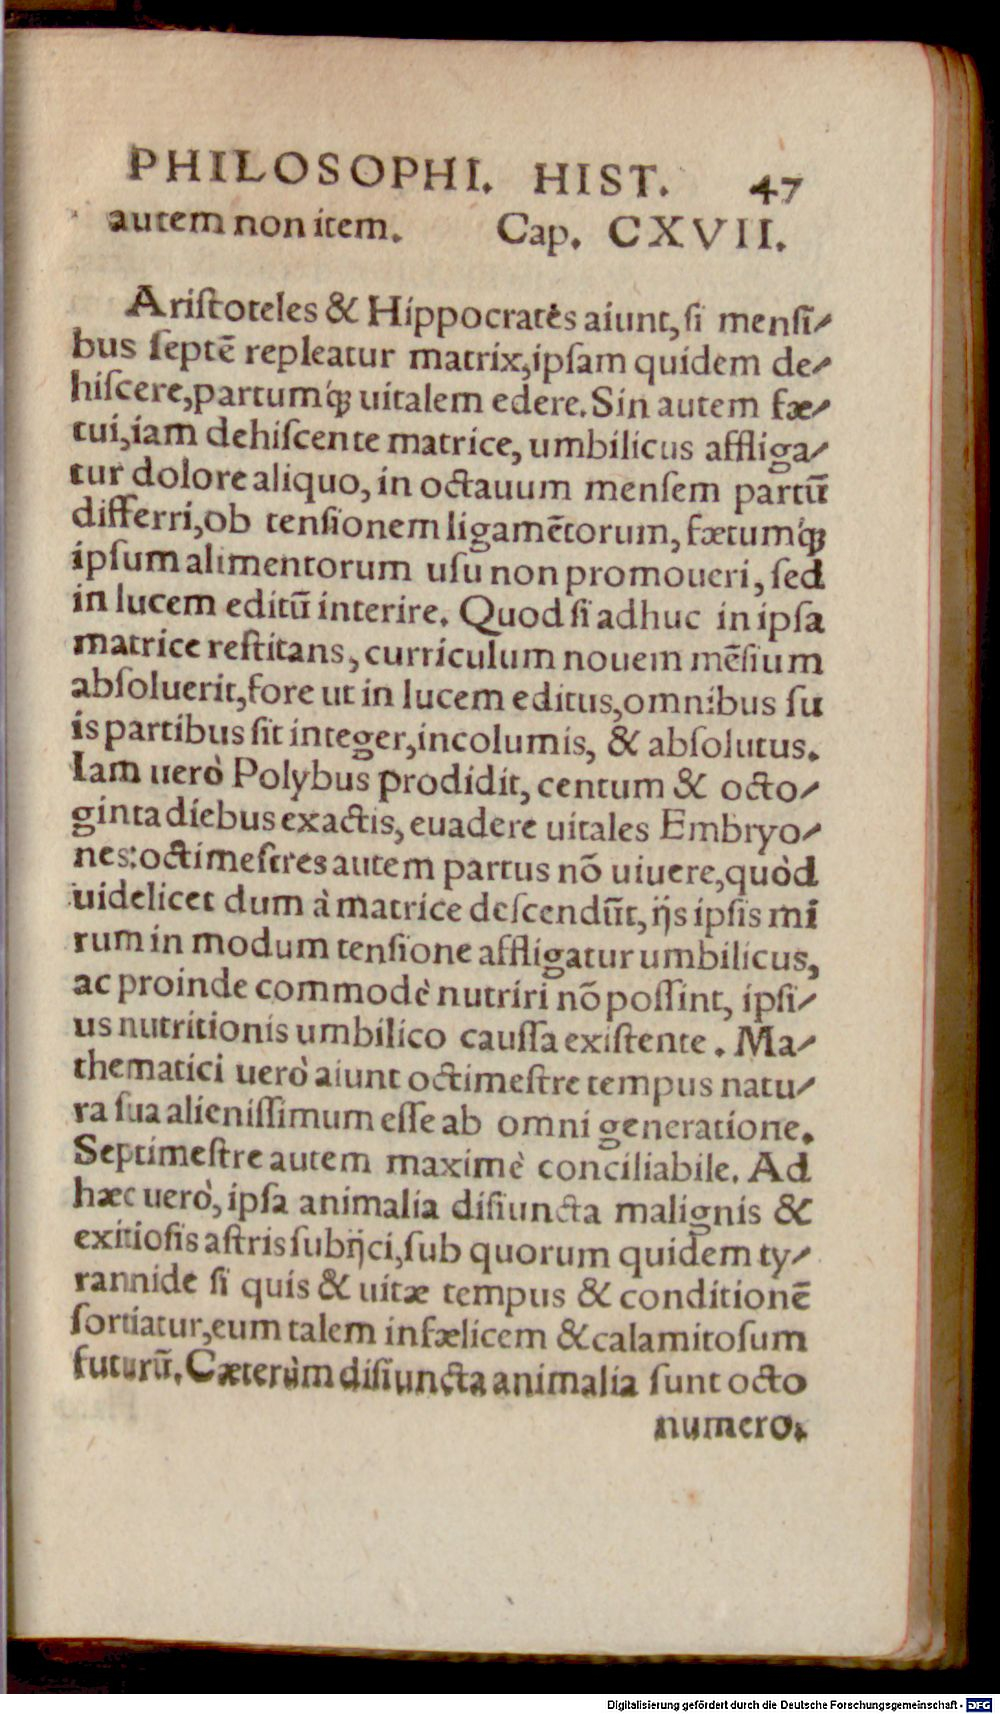 PHILOSOPHI. HIST. 47
autem non item. Cap. CXVII.
Ariſtoteles & Hippocratés aiunt, ſi menſi⸗
bus ſeptē repleatur matrix, ipſam quidem de⸗
hiſcere, partumq́; uitalem edere. Sin autem fæ⸗
tui, iam dehiſcente matrice, umbilicus affliga⸗
tur dolore aliquo, in octauum menſem partū
differri, ob tenſionem ligamētorum, fætumq́;
ipſum alimentorum uſu non promoueri, ſed
in lucem editū interire. Quod ſi adhuc in ipſa
matrice reſtitans, curriculum nouem mēſium
abſoluerit, fore ut in lucem editus, omnibus ſu
is partibus ſit integer, incolumis, & abſolutus.
Iam uerò Polybus prodidit, centum & octo⸗
ginta diebus exactis, euadere uitales Embryo⸗
nes: octimeſtres autem partus nō uiuere, quòd
uidelicet dum à matrice deſcendūt, ijs ipſis mi
rum in modum tenſione affligatur umbilicus,
ac proinde commodè nutriri nō poſſint, ipſi⸗
us nutritionis umbilico cauſſa exiſtente. Ma⸗
thematici uerò aiunt octimeſtre tempus natu⸗
ra ſua alieniſſimum eſſe ab omni generatione.
Septimeſtre autem maximè conciliabile. Ad
hæc uerò, ipſa animalia diſiuncta malignis &
exitioſis aſtris ſubijci, ſub quorum quidem ty⸗
rannide ſi quis & uitæ tempus & conditionē
ſortiatur, eum talem infælicem & calamitoſum
futurū. Cæterùm diſiuncta animalia ſunt octo
numero.
Digitalisierung gefördert durch die Deutsche Forschungsgemeinschaft - DFG